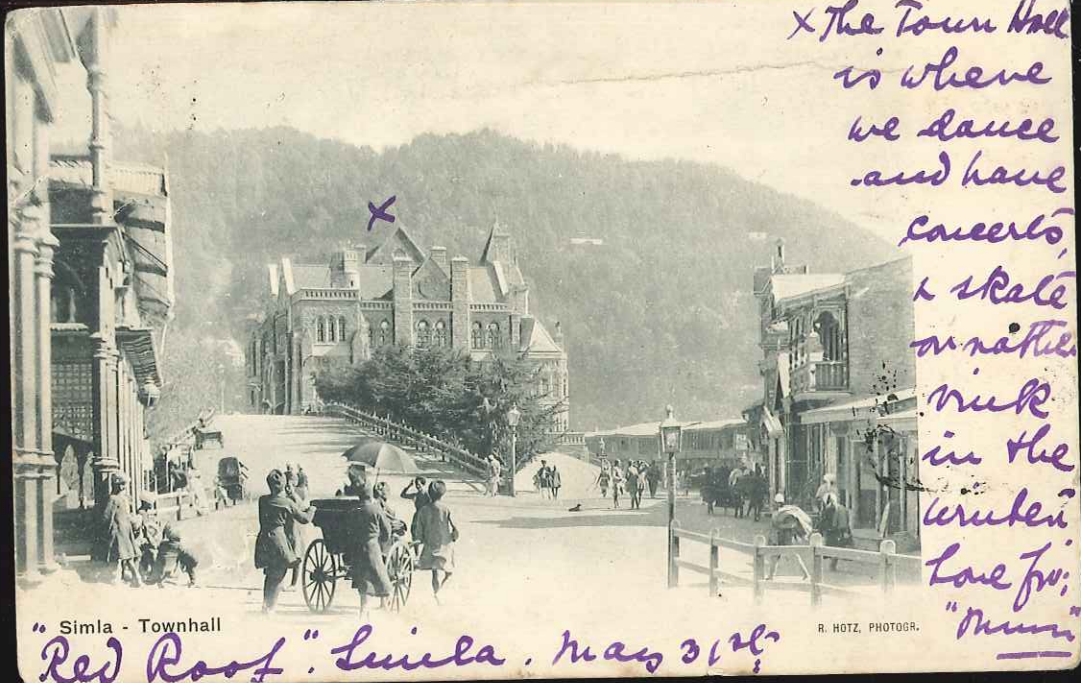 x The Town Hall
is where
we dance
and have
concerts,
& skate
or rather
rink
in the
winter.
Love fr:
"Mum"
Simla - Townhall
R. HOTZ, PHOTOGR.
"Red Roof". Simla. May 31st